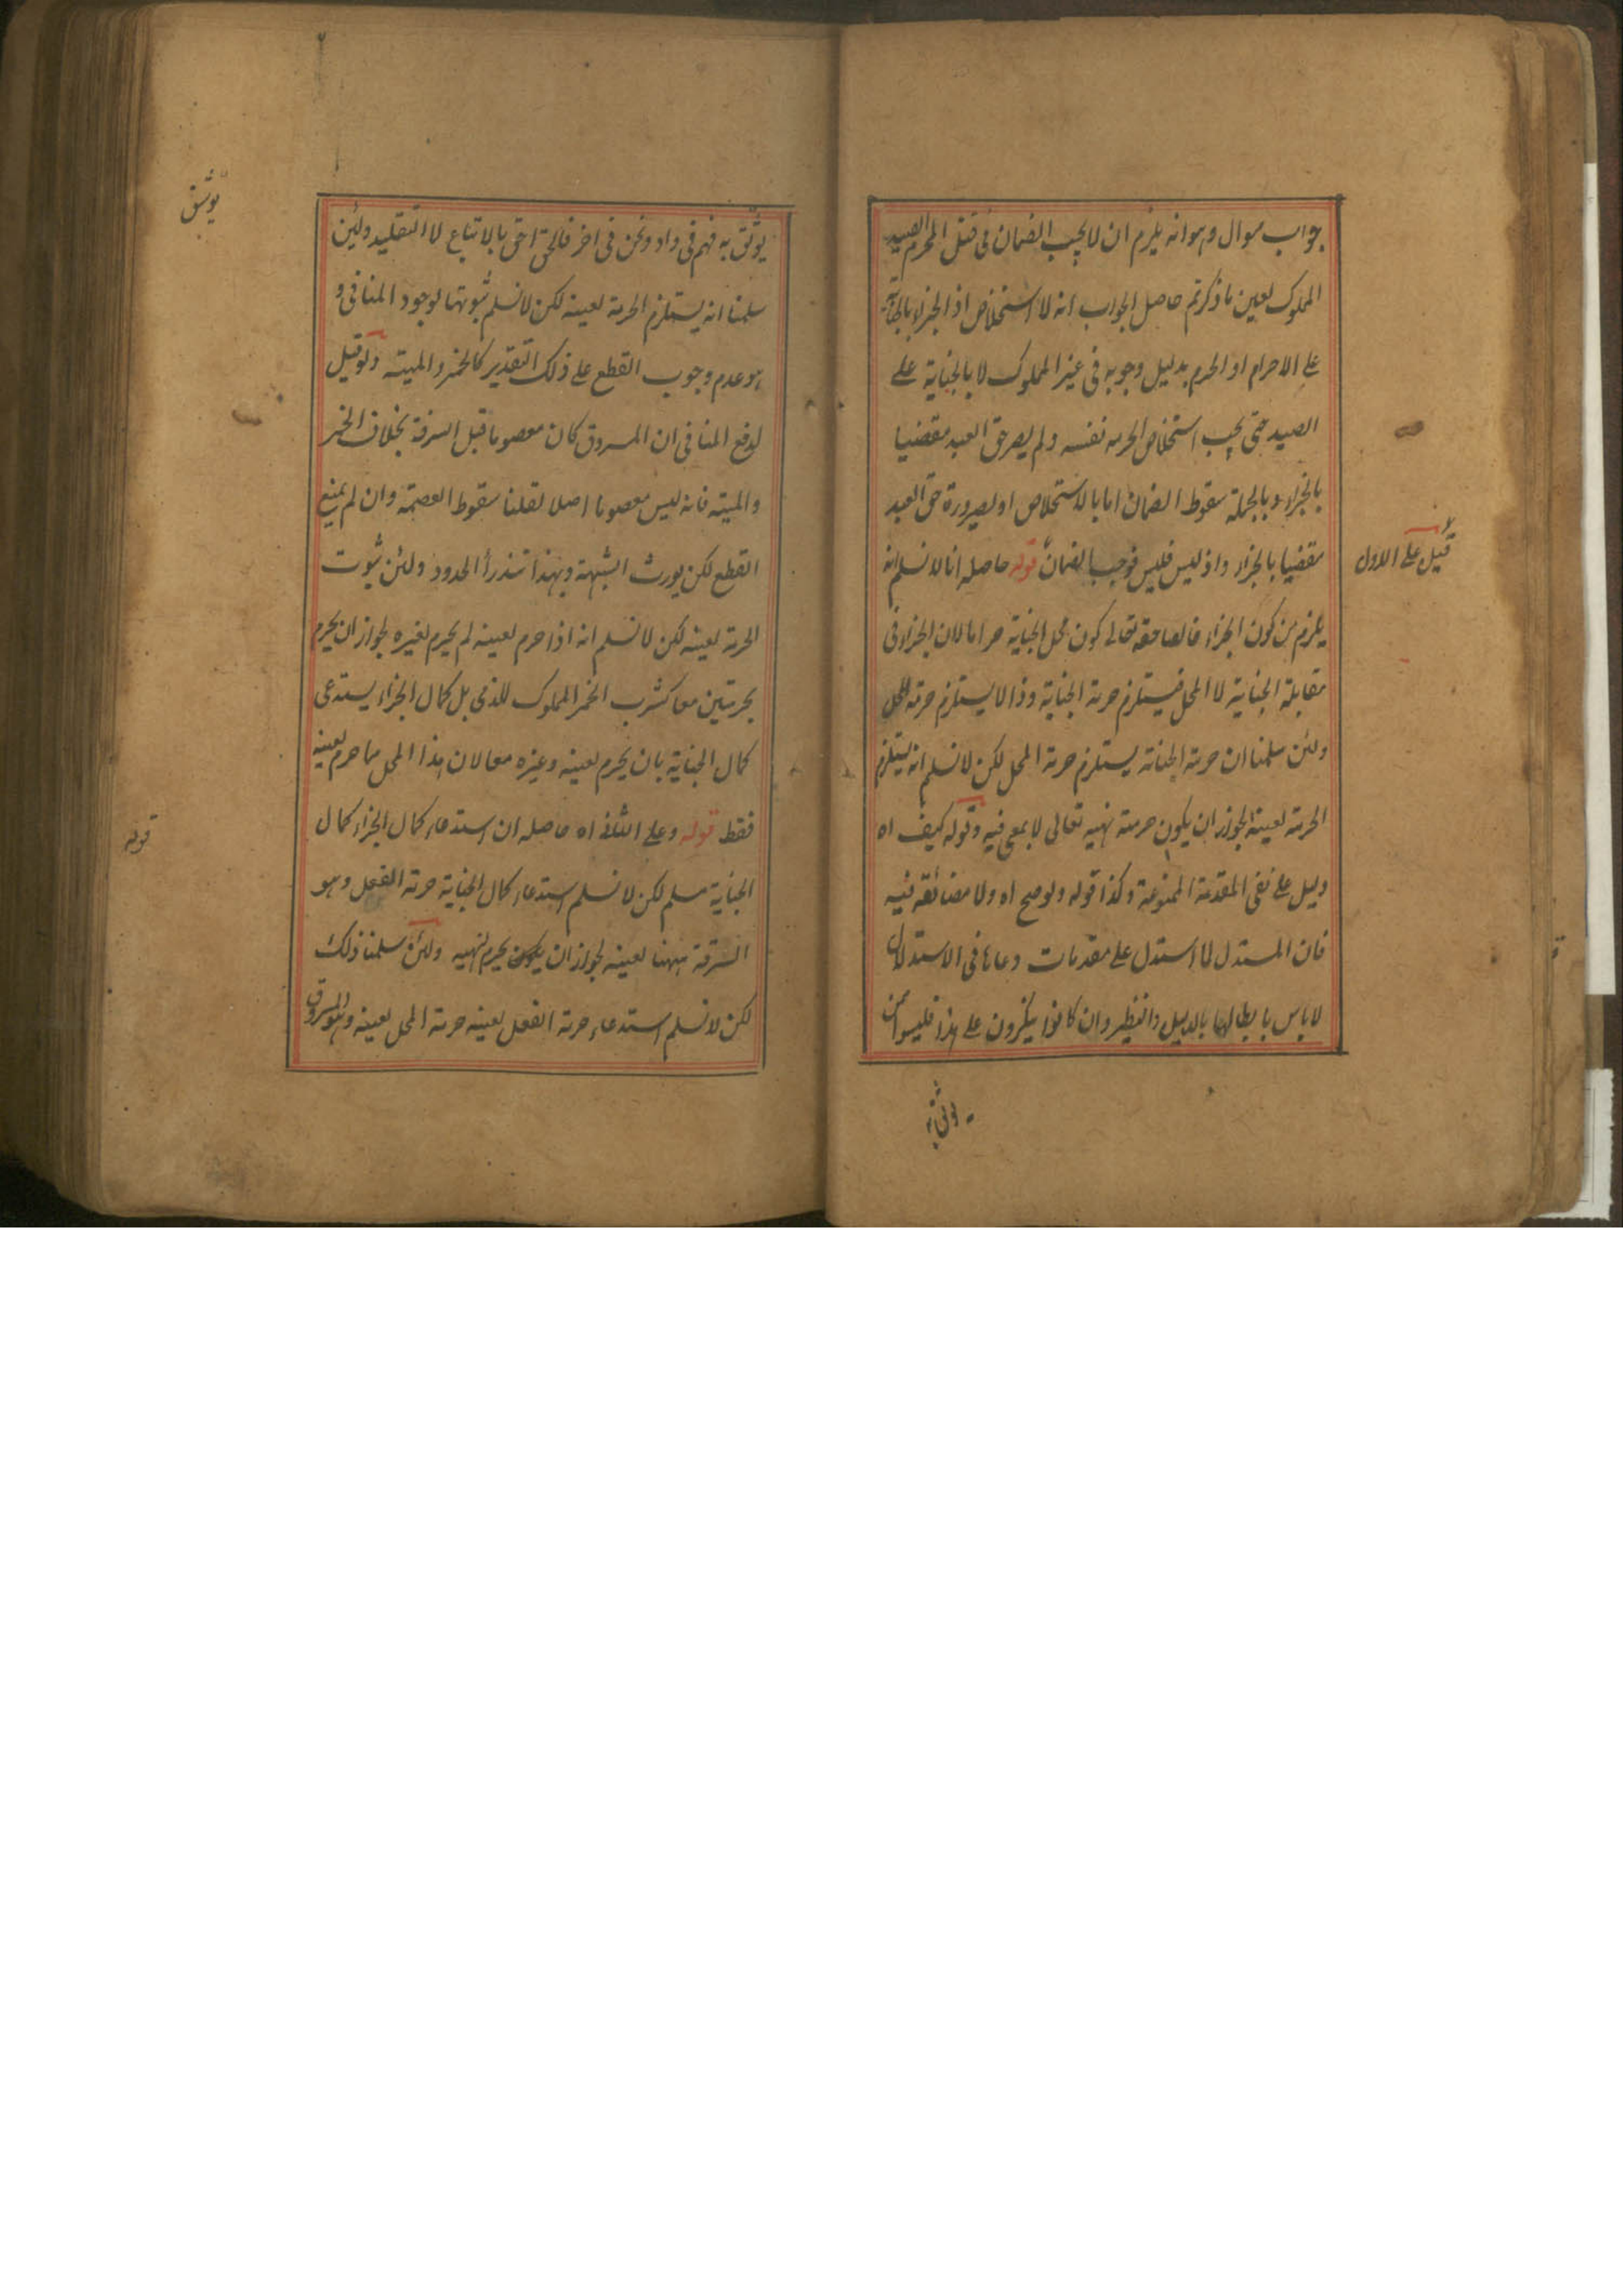 جواب سوال وهو انه يلزم ان لا يجب الضمان فى قتل المحرم الصيد
المملوك لعين ما ذكرتم حاصل الجواب انه لا استخلاص اذ الجزاء بالجناية
على الاحرام او الحرم بدليل وجوبه فى غير المملوك لا بالجناية على
الصيد حتى يجب استخلاص الحرمه نفسه ولم يصر حق العبد مقضيا
بالجزاء وبالجملة سقوط الضمان اما بالاستخلاص او لصيرورة حق العبد
مقضيا بالجزاء واذ ليس فليس فوجب الضمان قوله حاصله انا لا نسلم انه
قيل على الاول
يلزم من كون الجزاء خالصا حقه تعالى كون محل الجناية حراما لان الجزاء فى
مقابلة الجناية لا المحل فيستلزم حرمة الجناية وذا لا يستلزم حرمة المحل
ولئن سلمنا ان حرمة الجناية يستلزم حرمة المحل لكن لا نسلم انه يستلزم
الحرمة لعينه لجواز ان يكون حرمته نهيه تعالى لا بمعنى فيه وقوله كيف اه
دليل على نفى المقدمة الممنوعة وكذا قوله ولو صح اه ولا مضائقة فيه
فان المستدل لما استدل على مقدمات دعاها فى الاستدلال
لا باس بابطالها بالدليل والنظير وان كانوا ينكرون على هذا فليسوا ممن
يوثق به
يوثق
يوثق به فهم فى واد ونحن فى اخر فالحق احق بالاتباع لا التقليد ولئن
سلمنا انه يستلزم الحرمة لعينه لكن لا نسلم ثبوتها لوجود المنافى و
هو عدم وجوب القطع على ذلك التقدير كالخمر والميته ولو قيل
لدفع المنافى ان المسروق كان معصوما قبل السرقة بخلاف الخمر
والميته فانه ليس معصوما اصلا لقلنا سقوط العصمة وان لم يمنع
القطع لكن يورث الشبهة وبهذا تندرأ الحدود ولئن ثبوت
الحرمة لعينه لكن لا نسلم انه اذا حرم لعينه لم يحرم لغيره لجواز ان يحرم
بحرمتين معا كشرب الخمر المملوك للذمى بل كمال الجزاء يستدعى
كمال الجناية بان يحرم لعينه وغيره معا لان هذا المحل مما حرم لعينه
فقط قوله وعلى الثانى اه حاصله ان استدعاء كمال الجزاء كمال
قوله
الجناية مسلم لكن لا نسلم استدعاء كمال الجناية حرمة الفعل وهو
السرقة ههنا لعينه لجواز ان يكون يحرم لنهيه ولئن سلمنا ذلك
لكن لا نسلم استدعاء حرمة الفعل لعينه حرمة المحل لعينه وهو المسروق